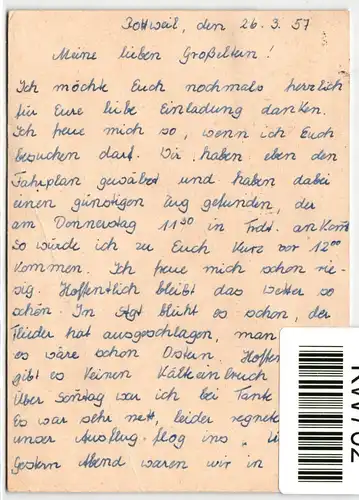 Rottweil, den 26.3.57
Meine lieben Großeltern!
Ich möchte Euch nochmals herzlich
für Eure liebe Einladung danken.
Ich freue mich so, wenn ich Euch
besuchen darf. Wir haben eben den
Fahrplan gewälzt und haben dabei
einen günstigen Zug gefunden, der
am Donnerstag 11 30 in Frdt. ankommt
so würde ich zu Euch kurz vor 12 00
kommen. Ich freue mich schon rie-
sig. Hoffentlich bleibt das Wetter so
schön. In Stgt blüht es schon, der
Flieder hat ausgeschlagen, man
es wäre schon Ostern.
gibt es keinen Kälteeinbruch
Über Sonntag war ich bei Tante
Es war sehr nett, leider regnete
unser Ausflug flog ins
Gestern Abend waren wir in